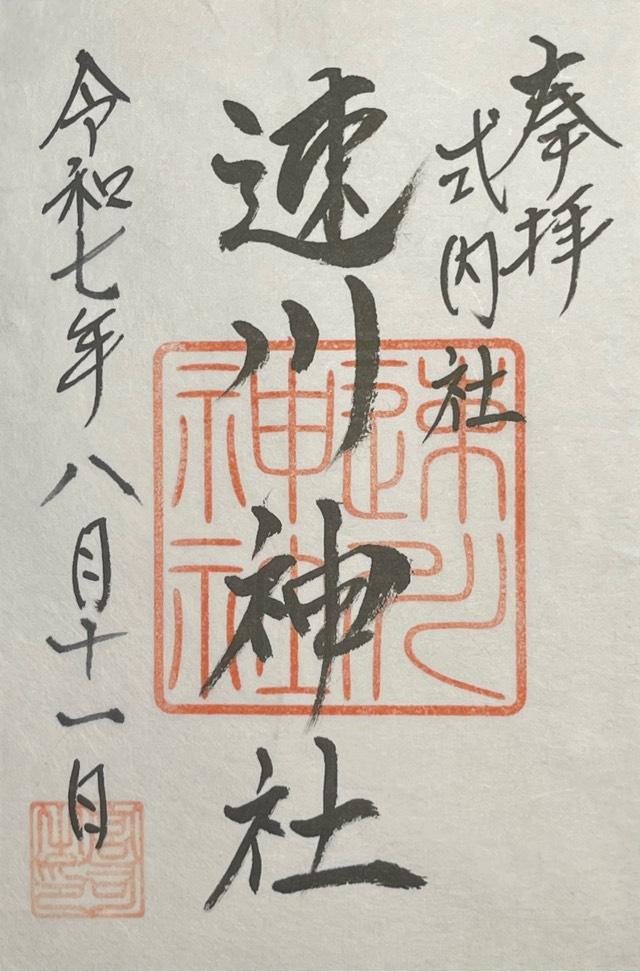 奉拝
式内社
速川神社
令和七年八月十一日
速川神社
宮司之印